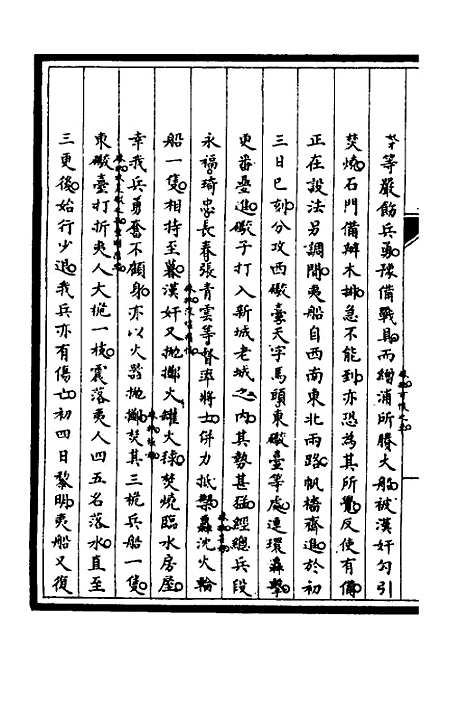 等嚴飭兵勇豫備戰具而繒消所雇大船被漢奸勾引
焚燒石門備辦木排急不能到亦恐為其所覺反使有備
正在設法另調間夷船自西南東北兩路帆檣齊進於初
三日巳刻分攻西礮臺天字馬頭東礮臺等處連環轟擊
更番疊進礮子打入新城老城之內其勢甚猛經總兵段
永福琦忠長春張青雲等督率將士併力抵擊轟沈火輪
船一隻相持至暮漢奸又拋擲火罐火毬焚燒臨水房屋
幸我兵勇奮不顧身亦以火器拋擲焚其三桅兵船一隻
東礮臺打折夷人大桅一枝震落夷人四五名落水直至
三更後始行少退我兵亦有傷亡初四日黎明夷船又復